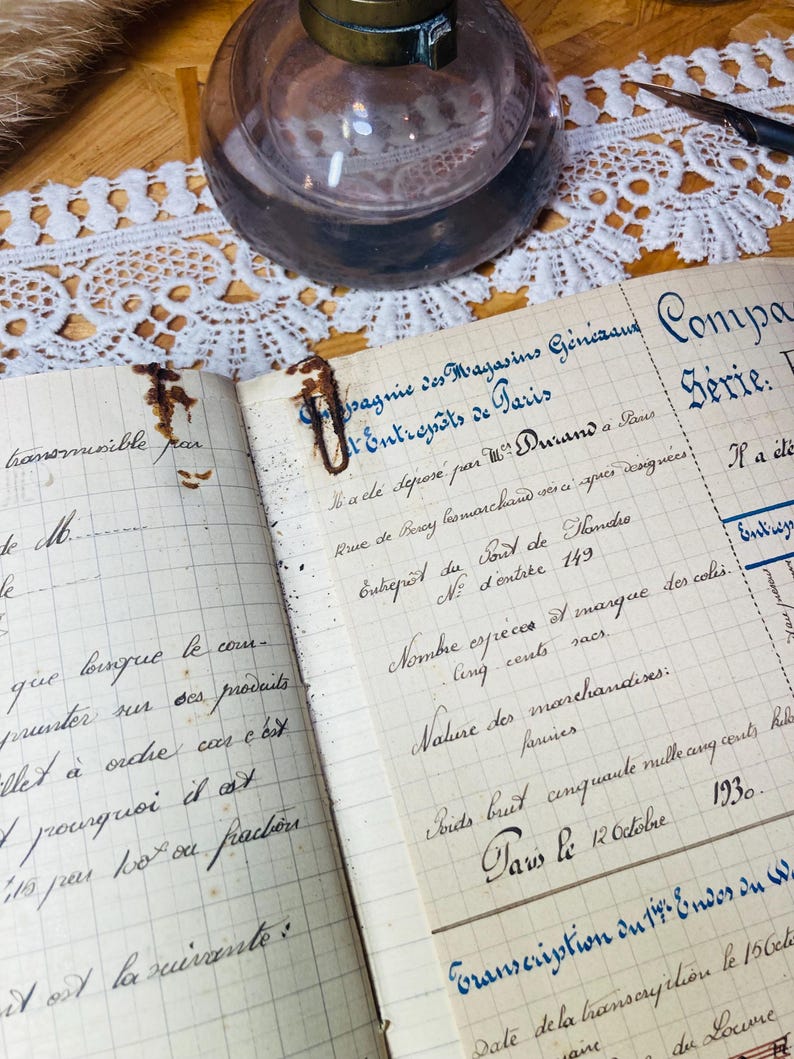 transmissible par
de M
le
que lorsque le com-
prunter sur ses produits
illet à ordre car c'est
t pourquoi il est
,15 par 100 ou fraction
nt est la suivante :
Compagnie des Magasins Généraux
et Entrepôts de Paris
Il a été déposé par Mes Durand à Paris
Rue de Bercy les marchandises ci après designées
Entrepôt du Pont de Flandre
No d'entrée 149
Nombre espèces et marque des colis.
Cinq cents sacs.
Nature des marchandises:
farines
Poids brut cinquante mille cinq cents kilo
Paris le 12 Octobre 1930.
Transcription du 1ier Endos du Wa
Date de la transcription le 15 Octo
naire du Louvre
Compa
Série:
Il a été
Entrep